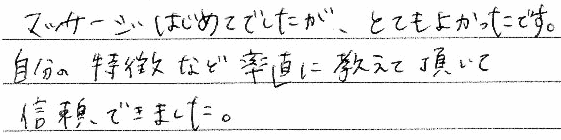 マッサージはじめてでしたが、とてもよかったです。
自分の特徴など率直に教えて頂いて
信頼できました。